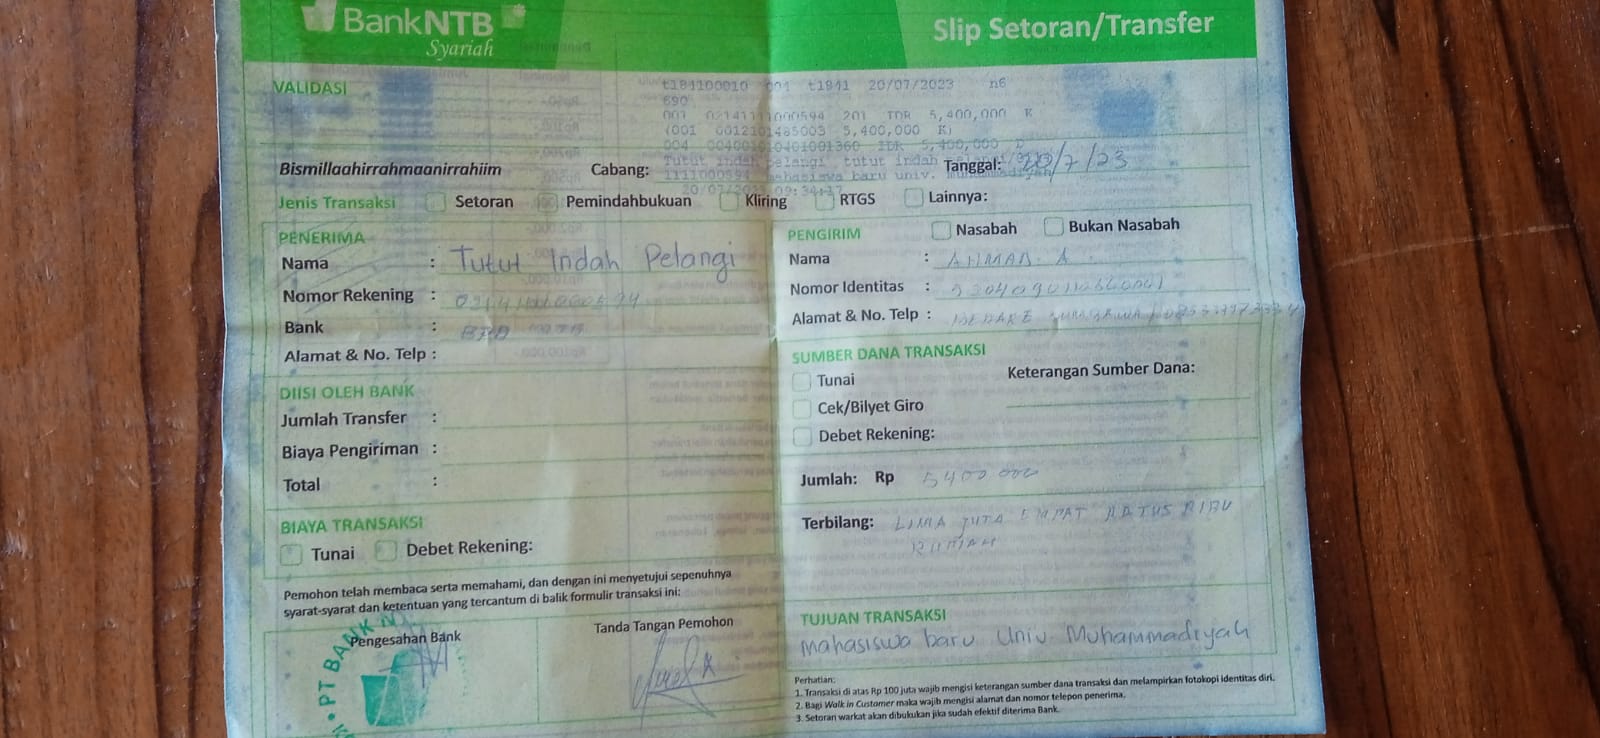 BankNTB
Syariah
Slip Setoran/Transfer
VALIDASI
t184100010 001 t1841 20/07/2023 n6
690
001 201 IDR 5,400,000 K
(001 0012101485003 5,400,000 K)
004 IDR 5,400,000 D
Tutut indah pelangi tutut indah
1111000594 mahasiswa baru univ. muhammadiyah
20/07/2023 09:34:17
Bismillaahirrahmaanirrahiim
Cabang:
Tanggal: 20/7/23
Jenis Transaksi Setoran Pemindahbukuan Kliring RTGS Lainnya:
PENERIMA
Nama : Tutut Indah Pelangi
Nomor Rekening :
Bank :
Alamat & No. Telp :
DIISI OLEH BANK
Jumlah Transfer :
Biaya Pengiriman :
Total :
BIAYA TRANSAKSI
Tunai Debet Rekening:
Pemohon telah membaca serta memahami, dan dengan ini menyetujui sepenuhnya
syarat-syarat dan ketentuan yang tercantum di balik formulir transaksi ini:
Pengesahan Bank
Tanda Tangan Pemohon
PT BANK N
PENGIRIM Nasabah Bukan Nasabah
Nama : AHMAD. A.
Nomor Identitas :
Alamat & No. Telp :
SUMBER DANA TRANSAKSI
Tunai Keterangan Sumber Dana:
Cek/Bilyet Giro
Debet Rekening:
Jumlah: Rp 5400 000
Terbilang: LIMA JUTA EMPAT RATUS RIBU
RUPIAH
TUJUAN TRANSAKSI
mahasiswa baru Univ Muhammadiyah
Perhatian:
1. Transaksi di atas Rp 100 juta wajib mengisi keterangan sumber dana transaksi dan melampirkan fotokopi identitas diri.
2. Bagi Walk in Customer maka wajib mengisi alamat dan nomor telepon penerima.
3. Setoran warkat akan dibukukan jika sudah efektif diterima Bank.